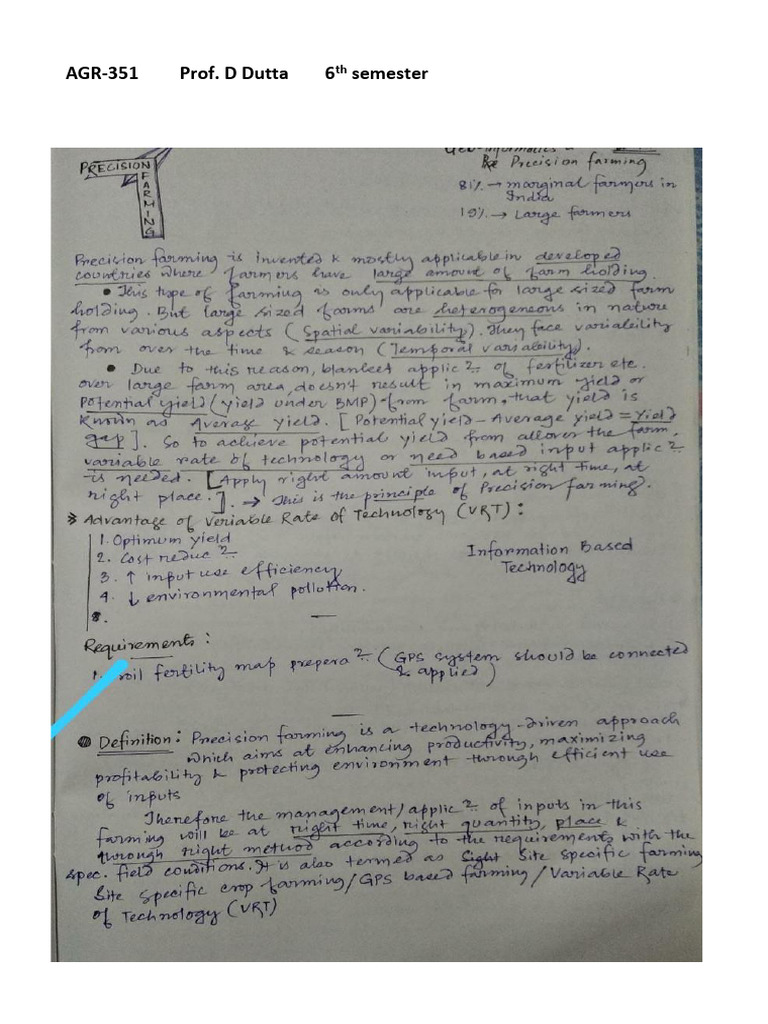 AGR-351 Prof. D Dutta 6th semester
Precision farming
PRECISION
FARMING
81% → marginal farmers in
India
19% → Large farmers
Precision farming is invented & mostly applicable in developed
countries where farmers have large amount of farm holding.
• This type of farming is only applicable for large sized farm
holding. But large sized farms are heterogeneous in nature
from various aspects (Spatial variability). They face variability
from over the time & season (Temporal variability).
• Due to this reason, blanket applicn of fertilizer etc.
over large farm area, doesnt result in maximum yield or
Potential yield (yield under BMP) from farm. that yield is
known as Average yield. [Potential yield - Average yield = Yield
gap]. So to achieve potential yield from allover the farm,
variable rate of technology or need based input applicn
is needed. [Apply right amount input, at right time, at
right place.]. → This is the principle of Precision farming.
Advantage of Variable Rate of Technology (VRT):
1. Optimum yield
2. Cost reducn
3. ↑ input use efficiency
4. ↓ environmental pollution.
Information Based
Technology
Requirements:
1. Soil fertility map preperan (GPS system should be connected
& applied)
Definition: Precision farming is a technology-driven approach
which aims at enhancing productivity, maximizing
profitability & protecting environment through efficient use
of inputs
Therefore the management/applicn of inputs in this
farming will be at right time, right quantity, place &
through right method according to the requirements with the
spec. field conditions. It is also termed as Site specific farming
Site specific crop farming/GPS based farming/Variable Rate
of Technology (VRT)